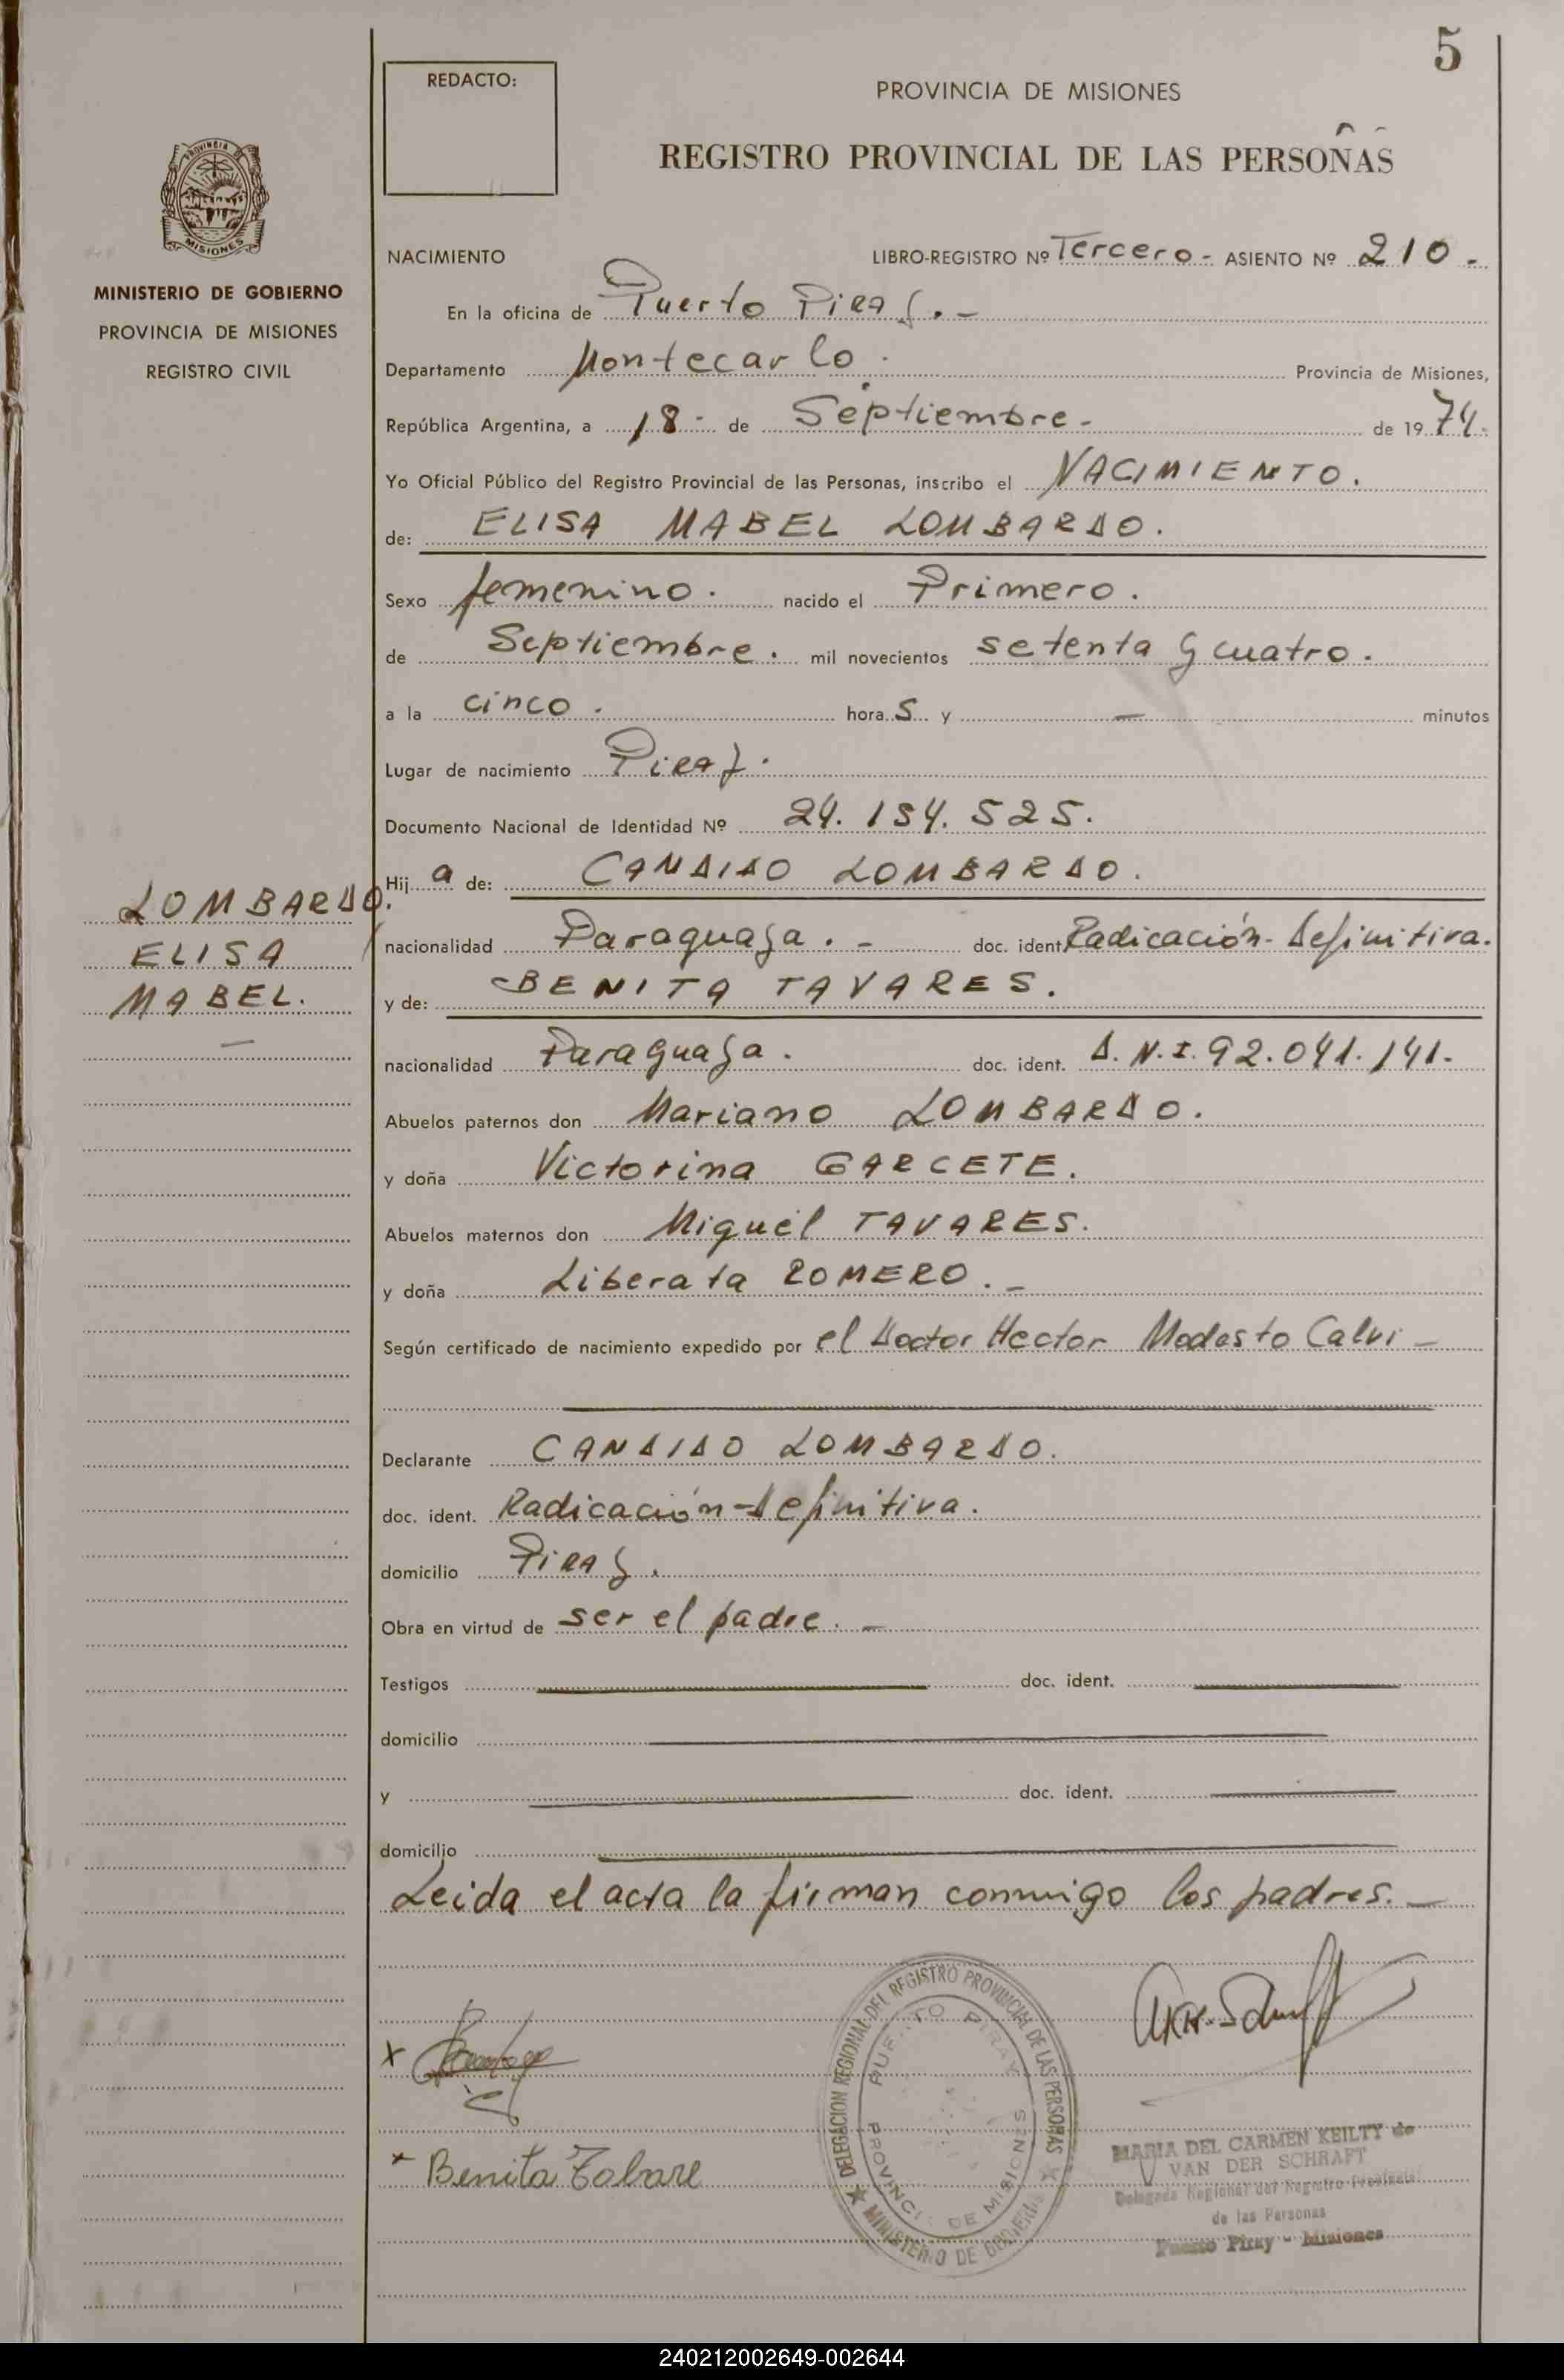 5
REDACTO:
PROVINCIA DE MISIONES
REGISTRO PROVINCIAL DE LAS PERSONAS
MISIONES
MINISTERIO DE GOBIERNO
PROVINCIA DE MISIONES
REGISTRO CIVIL
NACIMIENTO LIBRO-REGISTRO Nº Tercero - ASIENTO Nº 210.
En la oficina de Puerto Piray. -
Departamento Montecarlo. Provincia de Misiones,
República Argentina, a 18 - de Septiembre - de 1974.
Yo Oficial Público del Registro Provincial de las Personas, inscribo el NACIMIENTO.
de: ELISA MABEL LOMBARDO.
Sexo femenino. nacido el Primero.
de Septiembre. mil novecientos setenta y cuatro.
a la cinco. hora s y — minutos
Lugar de nacimiento Piray.
Documento Nacional de Identidad Nº 24.154.525.
Hij a de: CANDIDO LOMBARDO.
LOMBARDO.
ELISA
MABEL.
—
nacionalidad Paraguaya. - doc. ident. Radicación - Definitiva.
y de: BENITA TAVARES.
nacionalidad Paraguaya. doc. ident. D.N.I. 92.041.141.
Abuelos paternos don Mariano LOMBARDO.
y doña Victorina GARCETE.
Abuelos maternos don Miguel TAVARES.
y doña Liberata ROMERO. -
Según certificado de nacimiento expedido por el Doctor Hector Modesto Calvi -
Declarante CANDIDO LOMBARDO.
doc. ident. Radicación - Definitiva.
domicilio Piray.
Obra en virtud de ser el padre. -
Testigos doc. ident.
domicilio
y doc. ident.
domicilio
Leida el acta la firman conmigo los padres. -
x
x Benita Tabare
DELEGACION REGIONAL DEL REGISTRO PROVINCIAL DE LAS PERSONAS
MINISTERIO DE GOBIERNO
PUERTO PIRAY
PROVINCIA DE MISIONES
MARIA DEL CARMEN KEILTY de
VAN DER SCHRAFT
Delegada Regional del Registro Provincial
de las Personas
Puerto Piray - Misiones
240212002649-002644